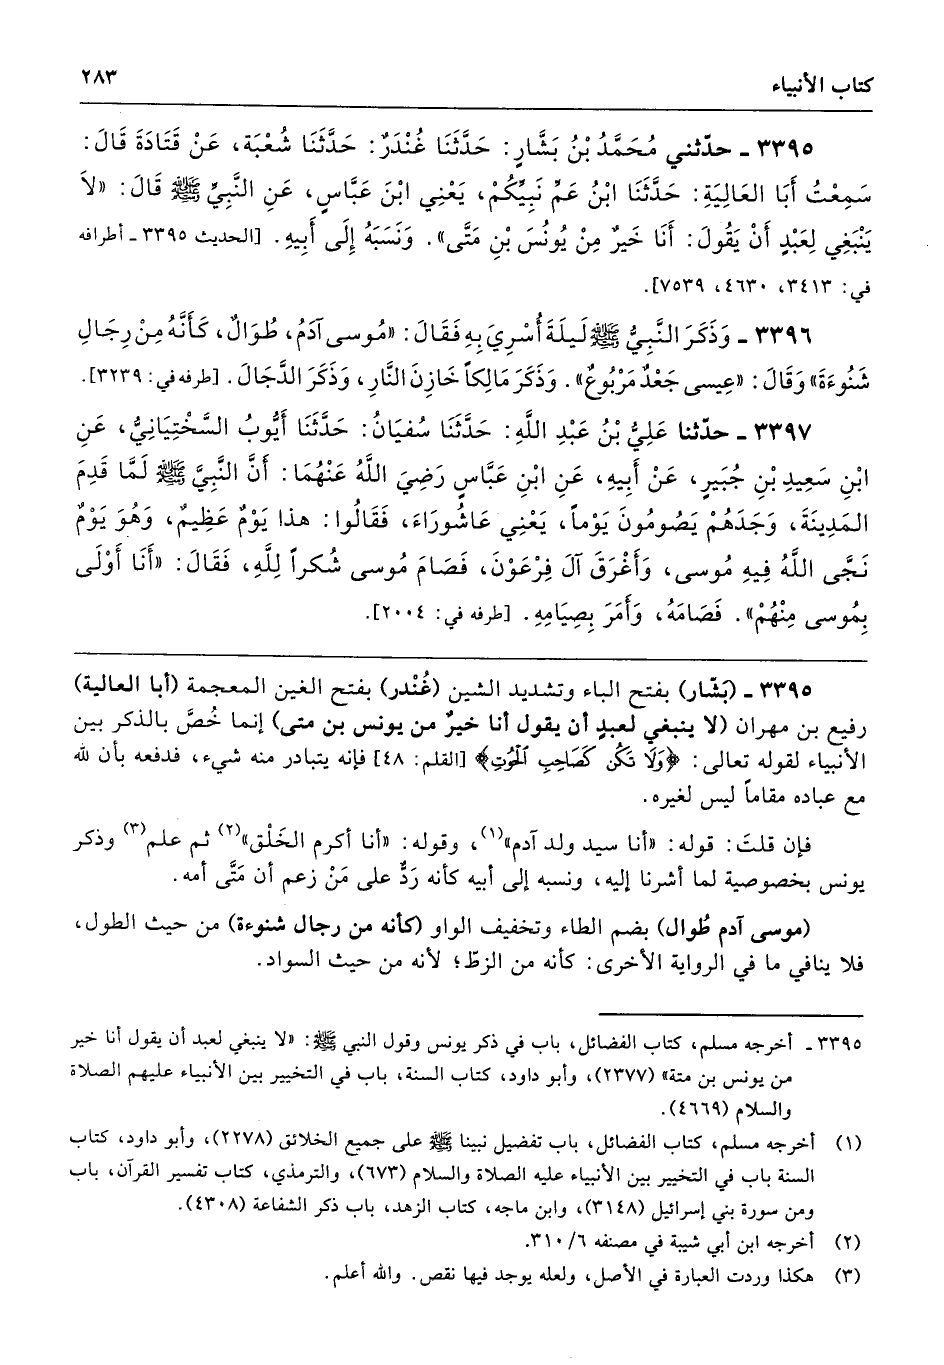 كتاب الأنبياء ٢٨٣
٣٣٩٥ ـ حدّثني مُحَمَّدُ بْنُ بَشَّارٍ: حَدَّثَنَا غُنْدَرٌ: حَدَّثَنَا شُعْبَة، عَنْ قَتَادَةَ قَالَ:
سَمِعْتُ أَبَا العَالِيَةِ: حَدَّثَنَا ابْنُ عَمِّ نَبِيِّكُمْ، يَعْنِي ابْنَ عَبَّاسٍ، عَنِ النَّبِيِّ ﷺ قَالَ: «لاَ
يَنْبَغِي لِعَبْدٍ أَنْ يَقُولَ: أَنَا خَيرٌ مِنْ يُونُسَ بْنِ مَتَّى». وَنَسَبَهُ إِلَى أَبِيهِ. [الحديث ٣٣٩٥ ـ أطرافه
في: ٣٤١٣، ٤٦٣٠، ٧٥٣٩].
٣٣٩٦ ـ وَذَكَرَ النَّبِيُّ ﷺ لَيلَةَ أُسْرِيَ بِهِ فَقَالَ: «مُوسى آدَمُ، طُوَالٌ، كَأَنَّهُ مِنْ رِجَالِ
شَنُوءَةَ» وَقَالَ: «عِيسى جَعْدٌ مَرْبُوعٌ». وَذَكَرَ مَالِكاً خَازِنَ النَّارِ، وَذَكَرَ الدَّجَالَ. [طرفه في: ٣٢٣٩].
٣٣٩٧ ـ حدّثنا عَلِيُّ بْنُ عَبْدِ اللَّهِ: حَدَّثَنَا سُفيَانُ: حَدَّثَنَا أَيُّوبُ السَّخْتِيَانِيُّ، عَنِ
ابْنِ سَعِيدِ بْنِ جُبَيرٍ، عَنْ أَبِيهِ، عَنِ ابْنِ عَبَّاسٍ رَضِيَ اللَّهُ عَنْهُمَا: أَنَّ النَّبِيَّ ﷺ لَمَّا قَدِمَ
المَدِينَةَ، وَجَدَهُمْ يَصُومُونَ يَوْماً، يَعْنِي عَاشُورَاءَ، فَقَالُوا: هذا يَوْمٌ عَظِيمٌ، وَهُوَ يَوْمٌ
نَجَّى اللَّهُ فِيهِ مُوسى، وَأَغْرَقَ آلَ فِرْعَوْنَ، فَصَامَ مُوسى شُكراً لِلَّهِ، فَقَالَ: «أَنَا أَوْلَى
بِمُوسى مِنْهُمْ». فَصَامَهُ، وَأَمَرَ بِصِيَامِهِ. [طرفه في: ٢٠٠٤].
٣٣٩٥ ـ (بَشّار) بفتح الباء وتشديد الشين (غُنْدر) بفتح الغين المعجمة (أبا العالية)
رفيع بن مهران (لا ينبغي لعبدٍ أن يقول أنا خيرٌ من يونس بن متى) إنما خُصَّ بالذكر بين
الأنبياء لقوله تعالى: ﴿وَلَا تَكُن كَصَاحِبِ ٱلْحُوتِ﴾ [القلم: ٤٨] فإنه يتبادر منه شيء، فدفعه بأن لله
مع عباده مقاماً ليس لغيره.
فإن قلتَ: قوله: «أنا سيد ولد آدم»(١)، وقوله: «أنا أكرم الخَلْق»(٢) ثم علم(٣) وذكر
يونس بخصوصية لما أشرنا إليه، ونسبه إلى أبيه كأنه ردٌّ على مَنْ زعم أن مَتَّى أمه.
(موسى آدم طُوال) بضم الطاء وتخفيف الواو (كأنه من رجال شنوءة) من حيث الطول،
فلا ينافي ما في الرواية الأخرى: كأنه من الزطّ؛ لأنه من حيث السواد.
٣٣٩٥ ـ أخرجه مسلم، كتاب الفضائل، باب في ذكر يونس وقول النبي ﷺ: «لا ينبغي لعبد أن يقول أنا خير
من يونس بن متة» (٢٣٧٧)، وأبو داود، كتاب السنة، باب في التخيير بين الأنبياء عليهم الصلاة
والسلام (٤٦٦٩).
(١) أخرجه مسلم، كتاب الفضائل، باب تفضيل نبينا ﷺ على جميع الخلائق (٢٢٧٨)، وأبو داود، كتاب
السنة باب في التخيير بين الأنبياء عليه الصلاة والسلام (٦٧٣)، والترمذي، كتاب تفسير القرآن، باب
ومن سورة بني إسرائيل (٣١٤٨)، وابن ماجه، كتاب الزهد، باب ذكر الشفاعة (٤٣٠٨).
(٢) أخرجه ابن أبي شيبة في مصنفه ٣١٠/٦.
(٣) هكذا وردت العبارة في الأصل، ولعله يوجد فيها نقص. والله أعلم.